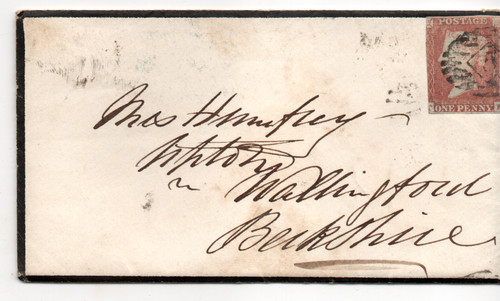 POSTAGE
ONE PENNY
Mrs Humfrey
Upton
Wallingford
Berkshire